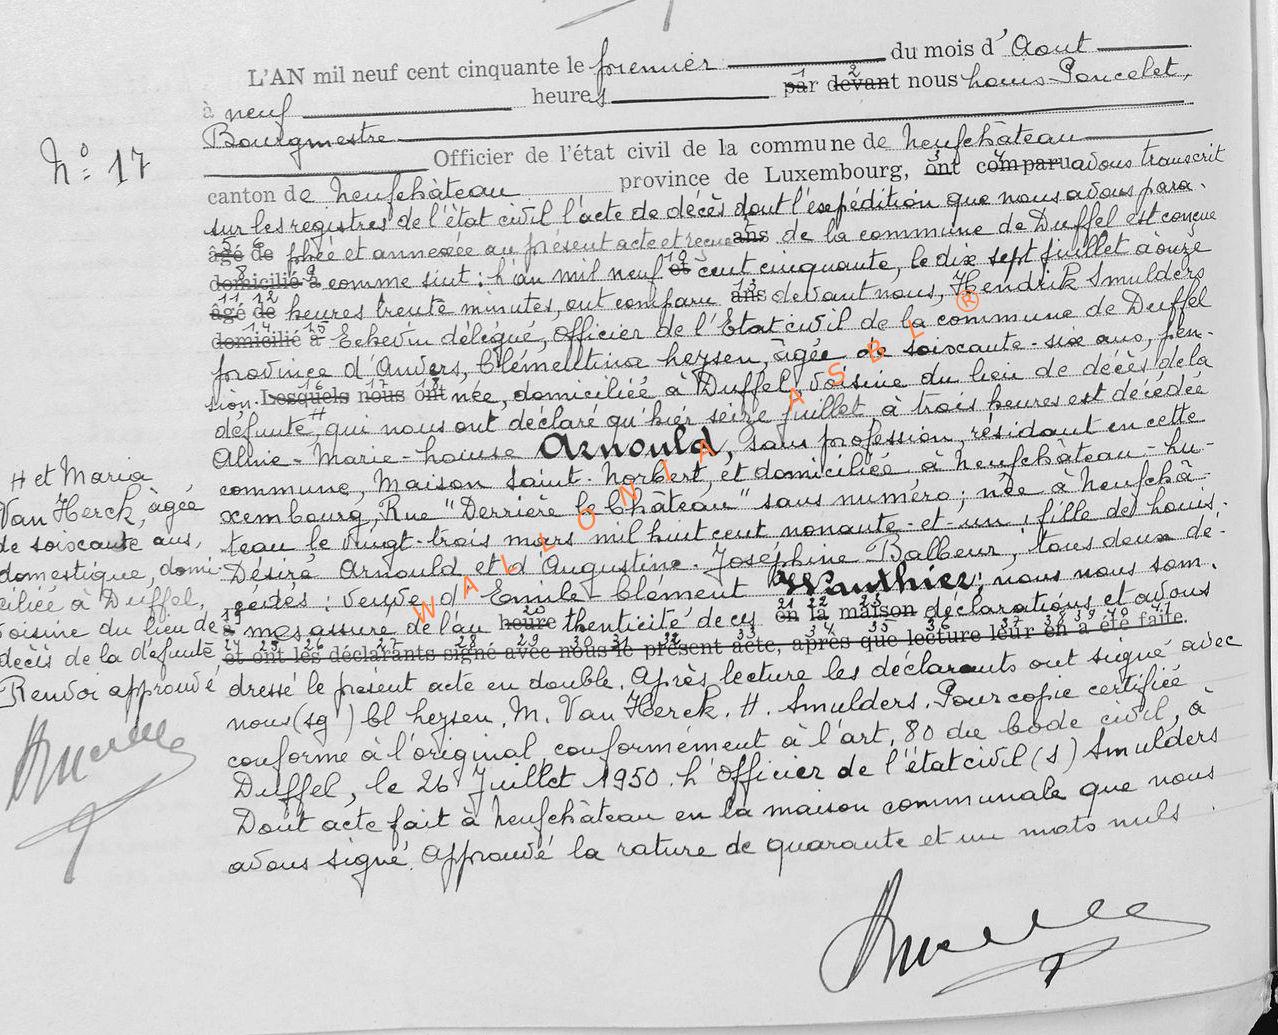 L'AN mil neuf cent cinquante le premier du mois d'Aout
à neuf heures par devant nous Louis Poncelet,
Bourgmestre
Officier de l'état civil de la commune de Neufchâteau
N° 17
canton de Neufchâteau province de Luxembourg, ont comparu avons transcrit
sur les registres de l'état civil l'acte de décès dont l'expédition que nous avons para-
âgé de phée et annexée au présent acte et reçue ans de la commune de Duffel est conçue
domicilié à comme suit : L'an mil neuf et cent cinquante, le dix sept juillet à onze
âgé de heures trente minutes, ont comparu ans devant nous, Hendrik Smulders
domicilié à Echevin délégué, Officier de l'Etat civil de la commune de Duffel
province d'Anvers, Clémentina Leysen, âgée de soixante-six ans, pen-
sion. Lesquels nous ont née, domiciliée à Duffel, voisine du lieu de décès de la
défunte #, qui nous ont déclaré qu'hier seize juillet à trois heures est décédée
Aline-Marie-Louise Arnould, sans profession, résidant en cette
commune, Maison Saint-Norbert, et domiciliée à Neufchâteau-Lu-
xembourg, Rue "Derrière le Château" sans numéro ; née à Neufchâ-
teau le vingt-trois mars mil huit cent nonante-et-un ; fille de Louis,
Désiré Arnould et d'Augustine-Joséphine Balbeur, tous deux dé-
cédés ; veuve d'Emile-Clément Wauthier ; nous nous som-
à mes assuré de l'au heure thenticité de ces en la maison déclarations et avons
et ont les déclarants signé avec nous le présent acte, après que lecture leur en a été faite.
dressé le présent acte en double. Après lecture les déclarants ont signé avec
nous (sg) Cl Leysen, M. Van Herck, H. Smulders. Pour copie certifiée
conforme à l'original, conformément à l'art. 80 du Code civil, à
Duffel, le 26 Juillet 1950. L'Officier de l'état civil (s) Smulders
Dont acte fait à Neufchâteau en la maison communale que nous
avons signé. Approuvé la rature de quarante et un mots nuls
# et Maria
Van Herck, âgée
de soixante ans,
domestique, domi-
ciliée à Duffel,
voisine du lieu de
décès de la défunte
Renvoi approuvé
WALLONIA ASBL ®